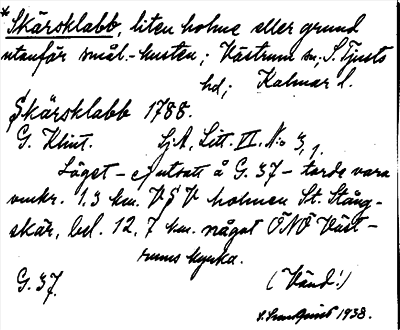 *Skärsklabb, liten holme eller grund
utanför smål.-kusten; Västrum sn; S. Tjusts
hd; Kalmar l.
Skärsklabb 1788.
G. Klint. Sj.A, Litt. VI. No 3,1.
Läget - ej utsatt å G. 37 - torde vara
omkr. 1,3 km. VSV holmen St. Stång-
skär, bel. 12,7 km. något ONO Väst-
rums kyrka.
G. 37. (Vänd!)
1938.